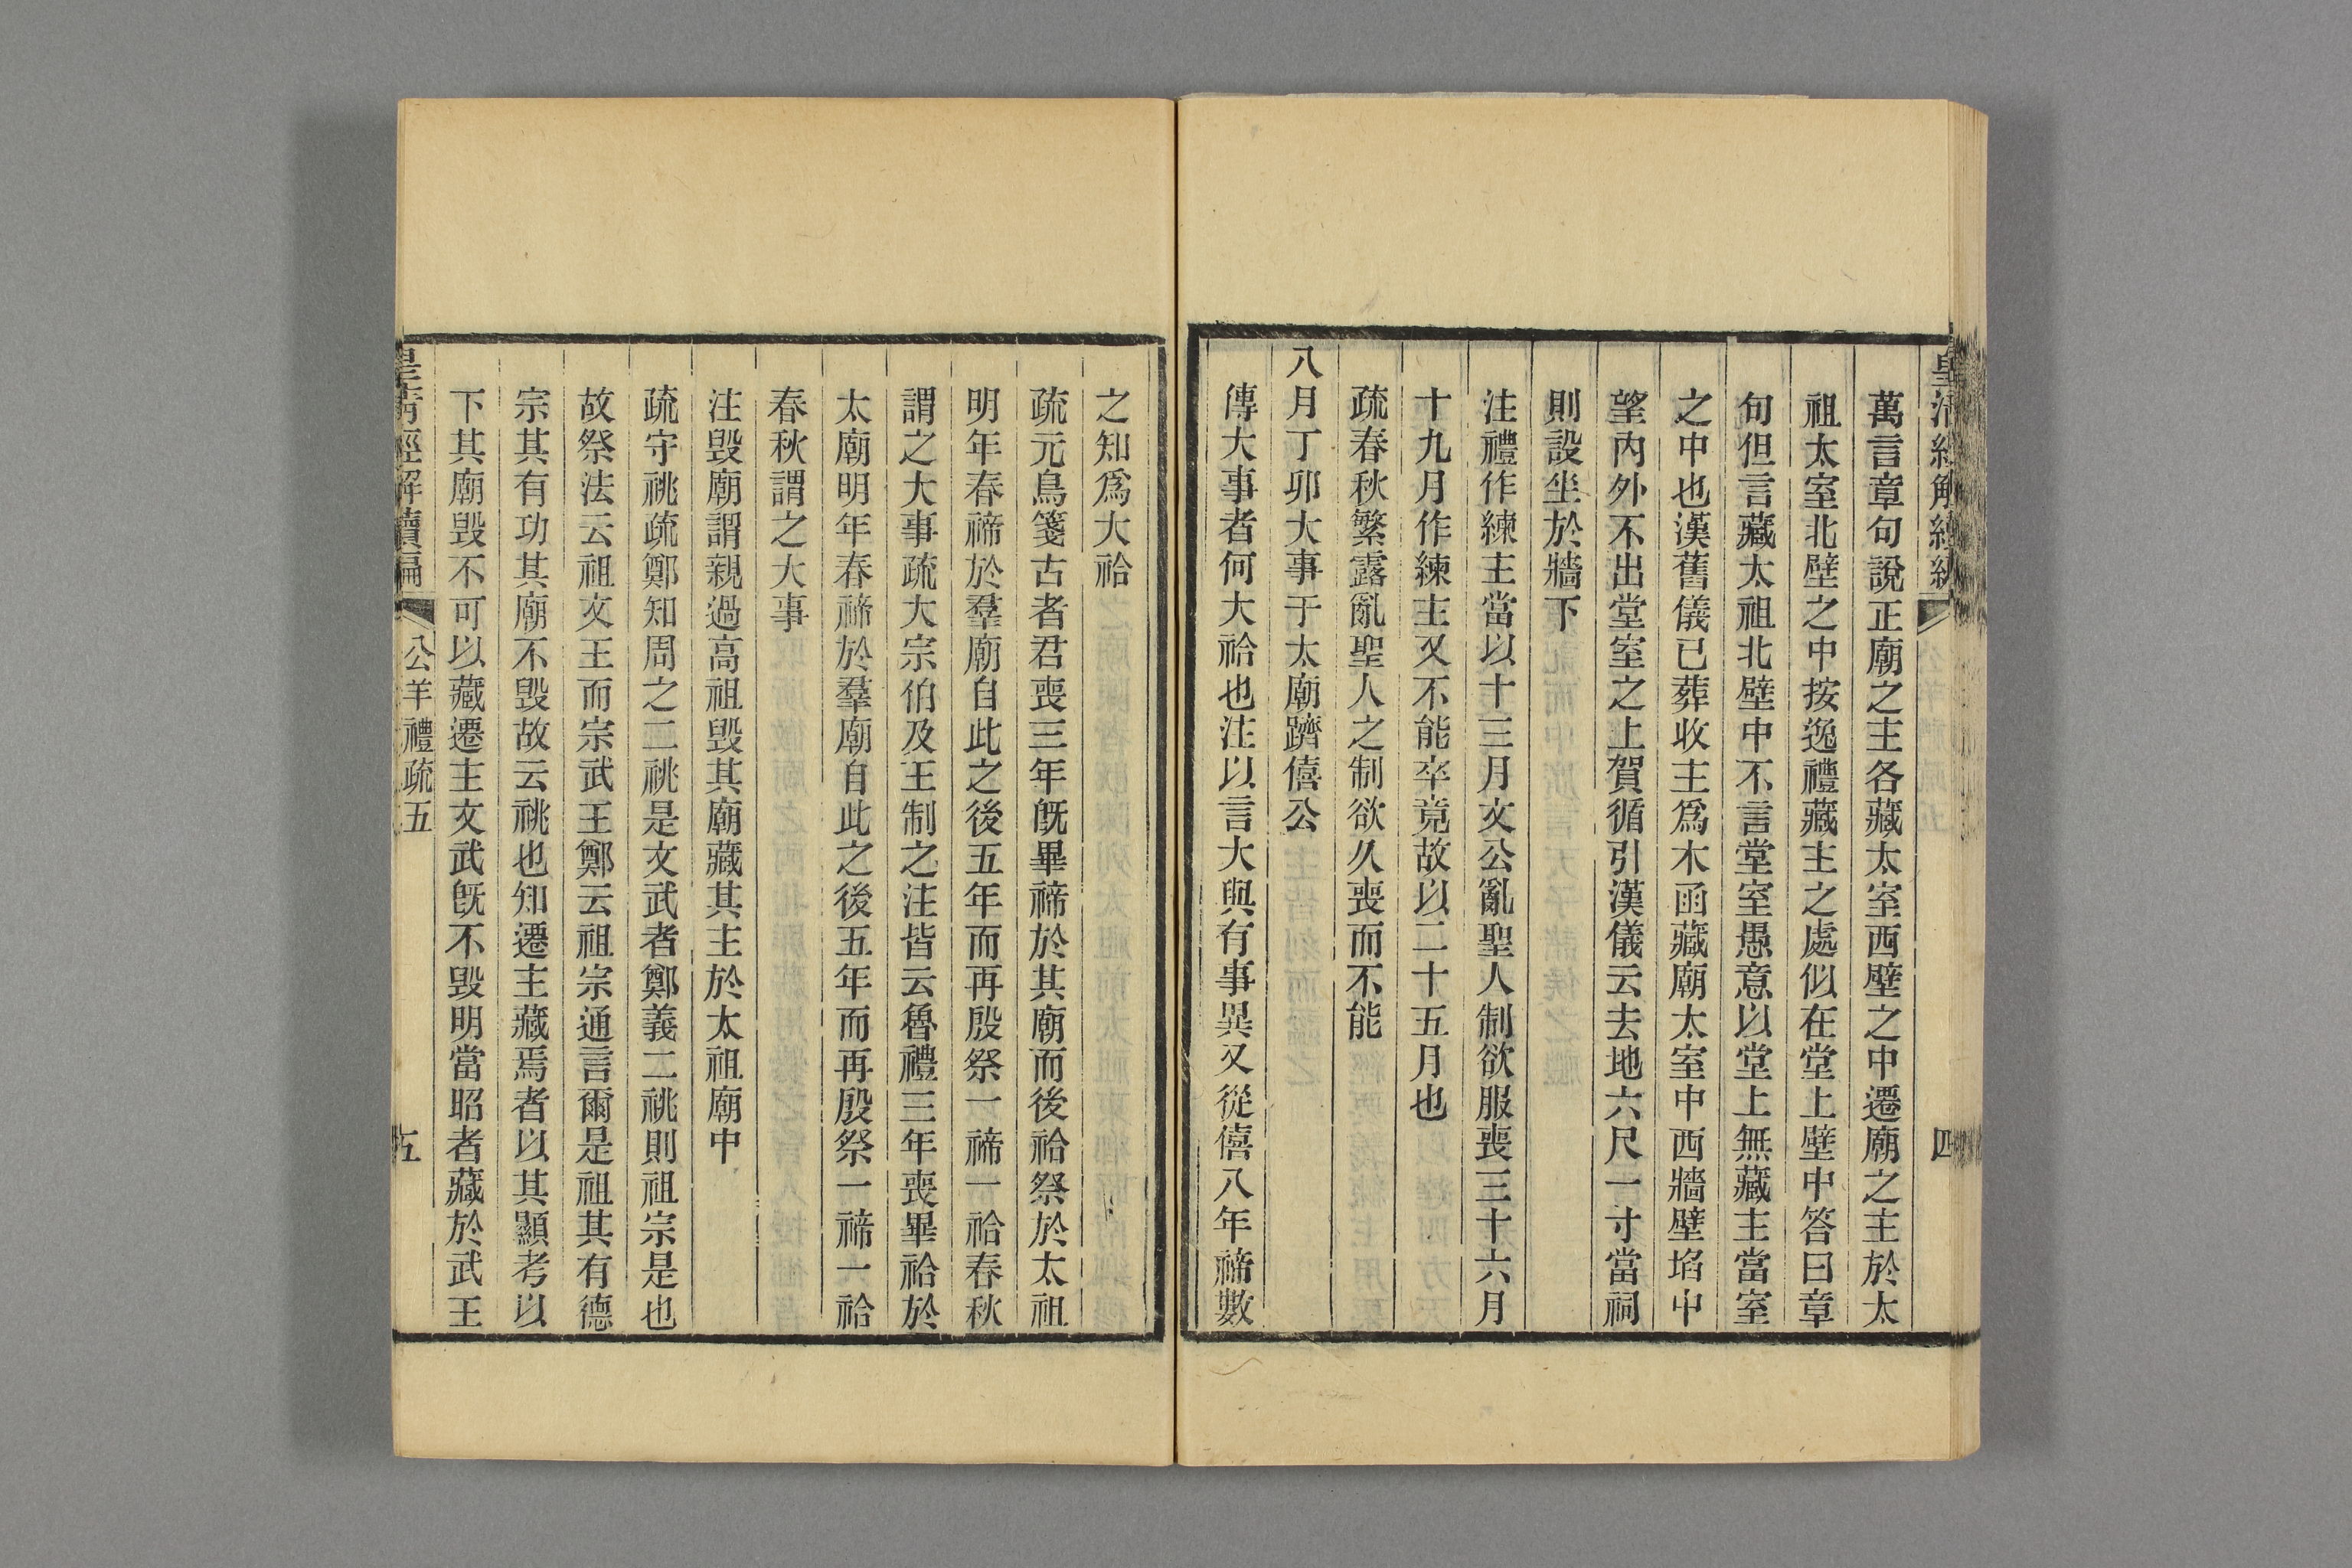 皇清經解續編
四
萬言章句說正廟之主各藏太室西壁之中遷廟之主於太
祖太室北壁之中按逸禮藏主之處似在堂上壁中答曰章
句但言藏太祖北壁中不言堂室愚意以堂上無藏主當室
之中也漢舊儀已葬收主爲木函藏廟太室中西牆壁埳中
望內外不出堂室之上賀循引漢儀云去地六尺一寸當祠
則設坐於牆下
注禮作練主當以十三月文公亂聖人制欲服喪三十六月
十九月作練主又不能卒竟故以二十五月也
疏春秋繁露亂聖人之制欲久喪而不能
八月丁卯大事于太廟躋僖公
傳大事者何大祫也注以言大與有事異又從僖八年禘數
之知爲大祫
疏元鳥箋古者君喪三年旣畢禘於其廟而後祫祭於太祖
明年春禘於羣廟自此之後五年而再殷祭一禘一祫春秋
謂之大事疏大宗伯及王制之注皆云魯禮三年喪畢祫於
太廟明年春禘於羣廟自此之後五年而再殷祭一禘一祫
春秋謂之大事
注毀廟謂親過高祖毀其廟藏其主於太祖廟中
疏守祧疏鄭知周之二祧是文武者鄭義二祧則祖宗是也
故祭法云祖文王而宗武王鄭云祖宗通言爾是祖其有德
宗其有功其廟不毀故云祧也知遷主藏焉者以其顯考以
下其廟毀不可以藏遷主文武旣不毀明當昭者藏於武王
皇清經解續編
公羊禮疏五
五